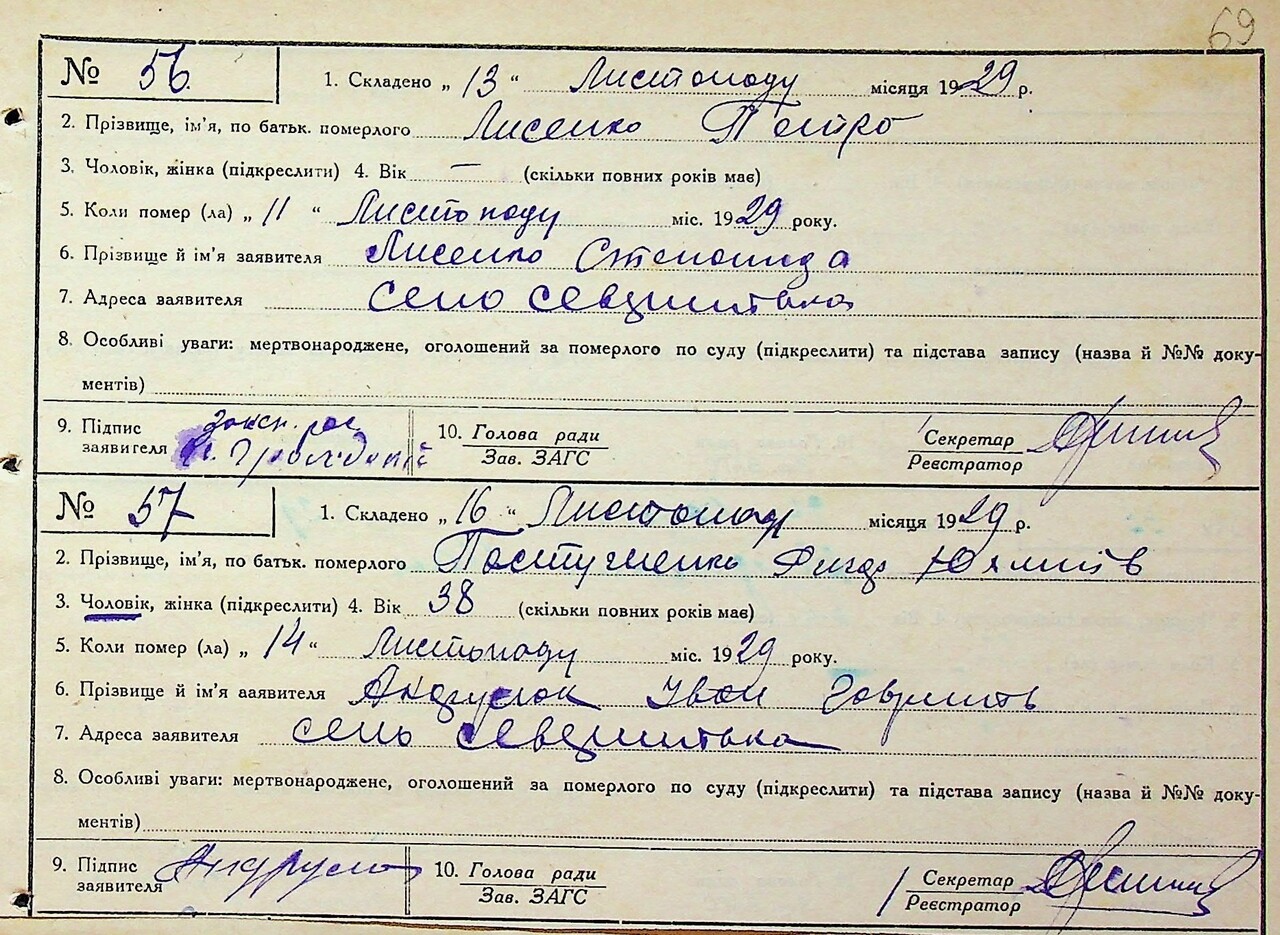 69
№ 56. 1. Складено „ 13 “ Листопаду місяця 1929 р.
2. Прізвище, ім'я, по батьк. померлого Лисенко Петро
3. Чоловік, жінка (підкреслити) 4. Вік — (скільки повних років має)
5. Коли помер (ла) „ 11 “ Листопаду міс. 1929 року.
6. Прізвище й ім'я заявителя Лисенко Степанида
7. Адреса заявителя село
8. Особливі уваги: мертвонароджене, оголошений за померлого по суду (підкреслити) та підстава запису (назва й №№ доку-
ментів)
9. Підпис заявителя 10. Голова ради Зав. ЗАГС Секретар Реєстратор
№ 57 1. Складено „ 16 “ Листопаду місяця 1929 р.
2. Прізвище, ім'я, по батьк. померлого
3. Чоловік, жінка (підкреслити) 4. Вік 38 (скільки повних років має)
5. Коли помер (ла) „ 14 “ Листопаду міс. 1929 року.
6. Прізвище й ім'я заявителя Андрусюк Іван
7. Адреса заявителя село
8. Особливі уваги: мертвонароджене, оголошений за померлого по суду (підкреслити) та підстава запису (назва й №№ доку-
ментів)
9. Підпис заявителя 10. Голова ради Зав. ЗАГС Секретар Реєстратор